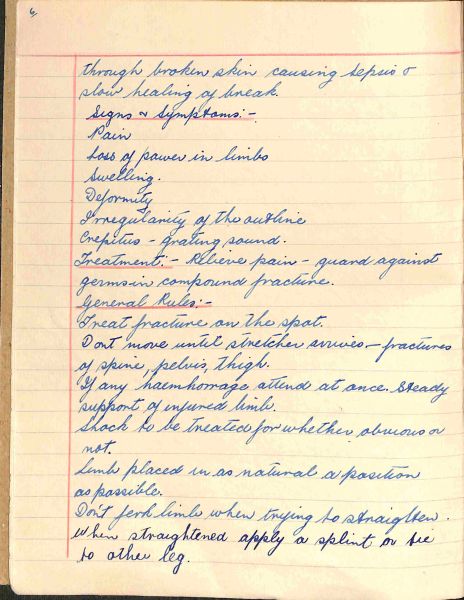 6
through broken skin causing sepsis &
slow healing of break.
Signs & Symptoms:-
Pain
Loss of power in limbs
Swelling.
Deformity
Irregularity of the outline
Crepitus - grating sound.
Treatment:- Relieve pain - guard against
germs in compound fracture.
General Rules:-
Treat fracture on the spot.
Dont move until stretcher arrives - fractures
of spine, pelvis, thigh.
If any haemhorrage attend at once. Steady
support of injured limb.
Shock to be treated for whether obvious or
not.
Limb placed in as natural a position
as possible.
Don't jerk limb when trying to straighten.
When straightened apply a splint or tie
to other leg.